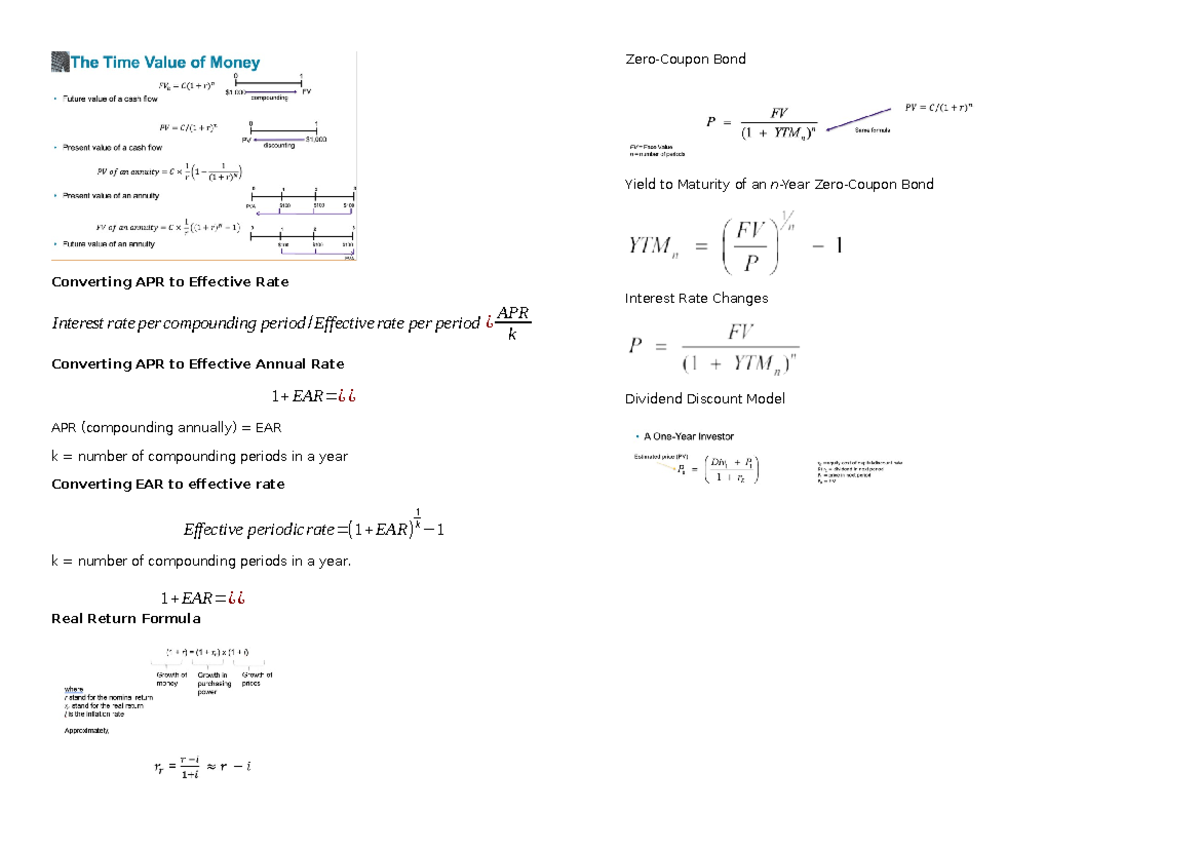 The Time Value of Money
FVn = C(1 + r)^n
0 1
$1,000 FV
compounding
• Future value of a cash flow
PV = C/(1 + r)^n
0 1
PV $1,000
discounting
• Present value of a cash flow
PV of an annuity = C × 1/r (1 − 1/(1 + r)^n)
• Present value of an annuity
0 1 2 3
PVA $100 $100 $100
FV of an annuity = C × 1/r ((1 + r)^n − 1)
• Future value of an annuity
0 1 2 3
$100 $100 $100
Converting APR to Effective Rate
Interest rate per compounding period/Effective rate per period ¿ APR/k
Converting APR to Effective Annual Rate
1+EAR=¿¿
APR (compounding annually) = EAR
k = number of compounding periods in a year
Converting EAR to effective rate
Effective periodic rate=(1+EAR)^(1/k)−1
k = number of compounding periods in a year.
1+EAR=¿¿
Real Return Formula
(1 + r) = (1 + rr) x (1 + i)
Growth of money
Growth in purchasing power
Growth of prices
where
r stand for the nominal return
rr stand for the real return
i is the inflation rate
Approximately,
rr = (r−i)/(1+i) ≈ r − i
Zero-Coupon Bond
P = FV/(1 + YTMn)^n
PV = C/(1 + r)^n
Same formula
FV = Face Value
n = number of periods
Yield to Maturity of an n-Year Zero-Coupon Bond
YTMn = (FV/P)^(1/n) − 1
Interest Rate Changes
P = FV/(1 + YTMn)^n
Dividend Discount Model
• A One-Year Investor
Estimated price (PV)
P0 = ((Div1 + P1)/(1 + rE))